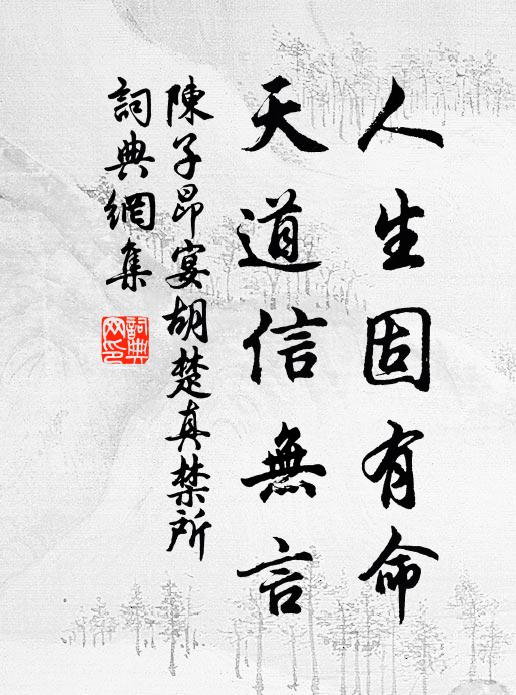 人生固有命
天道信無言
陳子昂宴胡楚真禁所
詞典網集
詞典網印